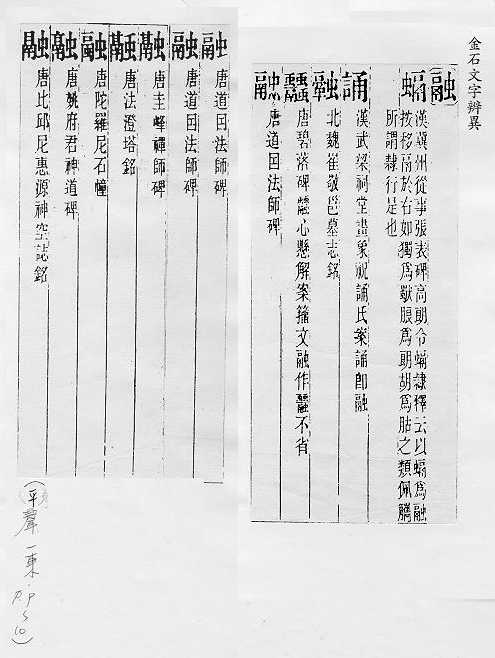 金石文字辨異
融
螎 漢冀州從事張表碑高朗令螎隸釋云以螎爲融
按移鬲於右如獨爲㹍脹爲朙胡爲𦙶之類佩觿
所謂隸行是也
誦 漢武梁祠堂畫象祝誦氏案誦卽融
北魏崔敬邕墓志銘
唐碧落碑融心懸解案籀文融作䖇不省
唐道因法師碑
唐道因法師碑
唐道因法師碑
唐圭峰禪師碑
唐法澄塔銘
唐陀羅尼石幢
唐姚府君神道碑
唐比邱尼惠源神空誌銘
(平聲一東.